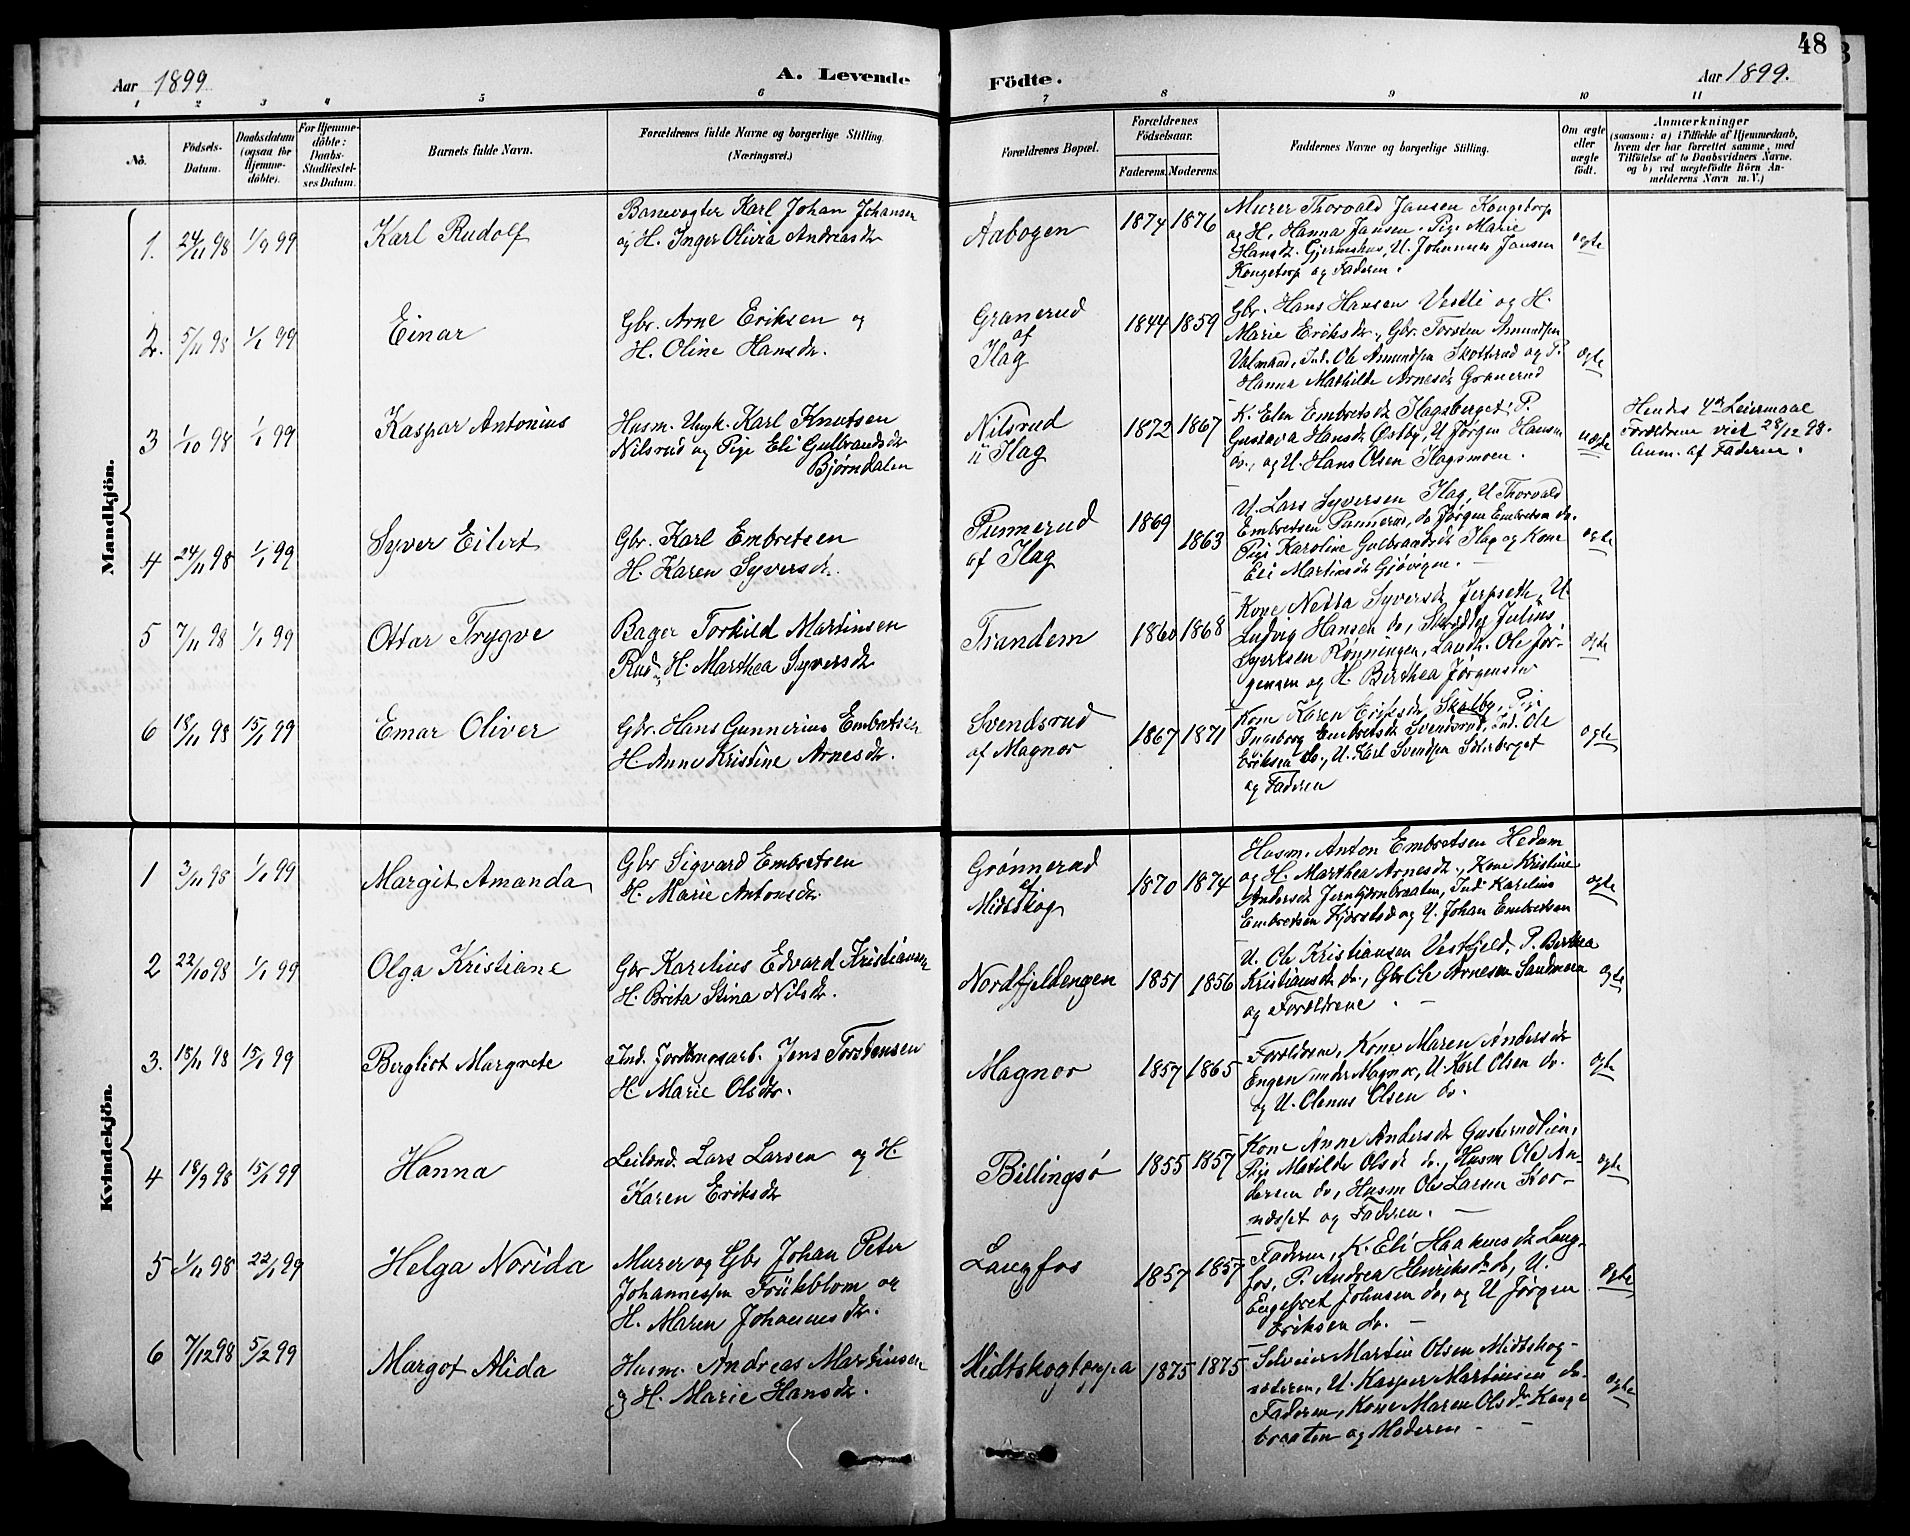 48
Aar 1899
A. Levende
Födte.
Aar 1899.
1 2 3 4 5 6 7 8 9 10 11
No.
Födsels-
Datum.
Daabsdatum
(ogsaa for
Hjemme-
döbte).
For Hjemme-
döbte:
Daabs-
Stadfæstel-
ses Datum.
Barnets fulde Navn.
Forældrenes fulde Navne og borgerlige Stilling.
(Næringsvei.)
Forældrenes Bopæl.
Forældrenes
Födselsaar.
Faderens. Moderens.
Faddernes Navne og borgerlige Stilling.
Om ægte
eller
uægte
født.
Anmærkninger
(saasom: a) i Tilfælde af Hjemmedaab,
hvem der har forrettet samme, med
Tilföielse af to Daabsvidners Navne.
og b) ved uægtefödte Börn An-
melderens Navn m. V.)
Mandkjön.
1. 24/11 98 1/1 99
Karl Rudolf
Banevogter Karl Johan Johansen
og H. Inger Olivia Andreasdr
Aabogen
1874 1876
Murer Thorvald Jansen Kongetorp
og H. Hanna Jansen. Pige Marie
Hansdr. Gjermshus, U. Johannes Jansen
Kongetorp og Faderen.
ægte
2. 5/11 98 1/1 99
Einar
Gbr. Arne Eriksen og
H. Oline Hansdr.
Granerud
af
Flag
1844 1859
Gbr. Hans Hansen Vestli og H.
Marie Eriksdr., Gbr. Torsten Amundsen
Valmaad, Ind. Ole Amundsen Skotterud og P.
Hanna Mathilde Arnesdr Granerud
ægte
3 1/10 98 1/1 99
Kaspar Antonius
Husm. Ungk. Karl Knutsen
Nilsrud og Pige Eli Gulbrandsdr
Bjørndalen
Nilsrud
u Flag
1872 1867
K. Elen Embretsdr Flagsberget, P.
Gustava Hansdr Østby, U Jørgen Hansen
do., og U. Hans Olsen Flagsmoen.
uægte
Hendes 4de Leiermaal
Forældrene viet 28/12 98.
Anm. af Faderen.
4 24/11 98 1/1 99
Syver Eilert
Gbr. Karl Embretsen
H. Karen Syversdr.
Punnerud
af Flag
1869 1863
U. Lars Syversen Flag, U Thorvald
Embretsen Punnerud, do Jørgen Embretsen do.
Pige Karoline Gulbrandsdr Flag og Kone
Eli Martinsdr Gjövigen.
ægte
5 7/11 98 1/1 99
Ottar Trygve
Bager Torkild Martinsen
Rud og H. Marthea Syversdr
Trandem
1860 1868
Kone Netta Syversdr Jerpseth, U.
Ludvig Hansen do, Julius
Syversen Rønningen, Landh. Ole Jør-
gensen og H. Berthea Jørgensen
ægte
6 18/11 98 15/1 99
Emar Oliver
Gbr. Hans Gunnerius Embretsen
H. Anne Kristine Arnesdr.
Svendsrud
af Magnor
1867 1871
Kone Karen Eriksdr Skalby, Pige
Ingeborg Embretsdr Svendsrud, Ind. Ole
Eriksen do., U. Karl Svendsen Solberget
og Faderen
ægte
Kvindekjön.
1 3/11 98 1/1 99
Margit Amanda
Gbr Sigvard Embretsen
H. Marie Antonsdr.
Grønnerud
af
Midtskog
1870 1874
Husm. Anton Embretsen Hedum
og H. Marthea Arnesdr., Kone Kristine
Andersdr Jernbjørnbraaten, Ind. Karelius
Embretsen Kjørstad og U. Johan Embretsen
ægte
2 22/10 98 1/1 99
Olga Kristiane
Gbr Karelius Edvard Kristiansen
H. Brita Stina Nilsdr.
Nordfjeldengen
1851 1856
U. Ole Kristiansen Vestfjeld, P. Berthea
Kristiansdr do., Gbr Ole Arnesen Sandmoen
og Forældrene.
ægte
3. 18/11 98 15/1 99
Bergliot Margrete
Ind. Jordbrugsarb. Jens Torstensen
H. Marie Olsdr.
Magnor
1857 1865
Forældrene, Kone Maren Andersdr
Engen under Magnor, U. Karl Olsen do.
og U. Olenus Olsen do.
ægte
4 18/9 98 15/1 99
Hanna
Leilænd. Lars Larsen og H.
Karen Eriksdr
Billingsø
1855 1857
Kone Anne Andersdr Gusterudlien,
Pige Matilde Olsdr do., Husm Ole An-
dersen do, Husm Ole Larsen Kor-
næsset og Faderen.
ægte
5 1/11 98 22/1 99
Helga Norida
Murer og Gbr Johan Peter
Johannessen Frükblom og
H. Maren Johannesdr.
Langfos
1857 1857
Faderen, K. Eli Haakensdr Lang-
fos, P. Andrea Henriksdr do, U.
Engebret Johnsen do, og U Jørgen
Eriksen do.
ægte
6 7/12 98 5/2 99
Margot Alida
Husm. Andreas Martinsen
og H. Marie Hansdr.
Midtskogtorpa
1875 1875
Selveier Martin Olsen Midtskog-
sæteren, U. Kasper Martinsen do.
Faderen, Kone Maren Olsdr Konge
braaten og Moderen
ægte